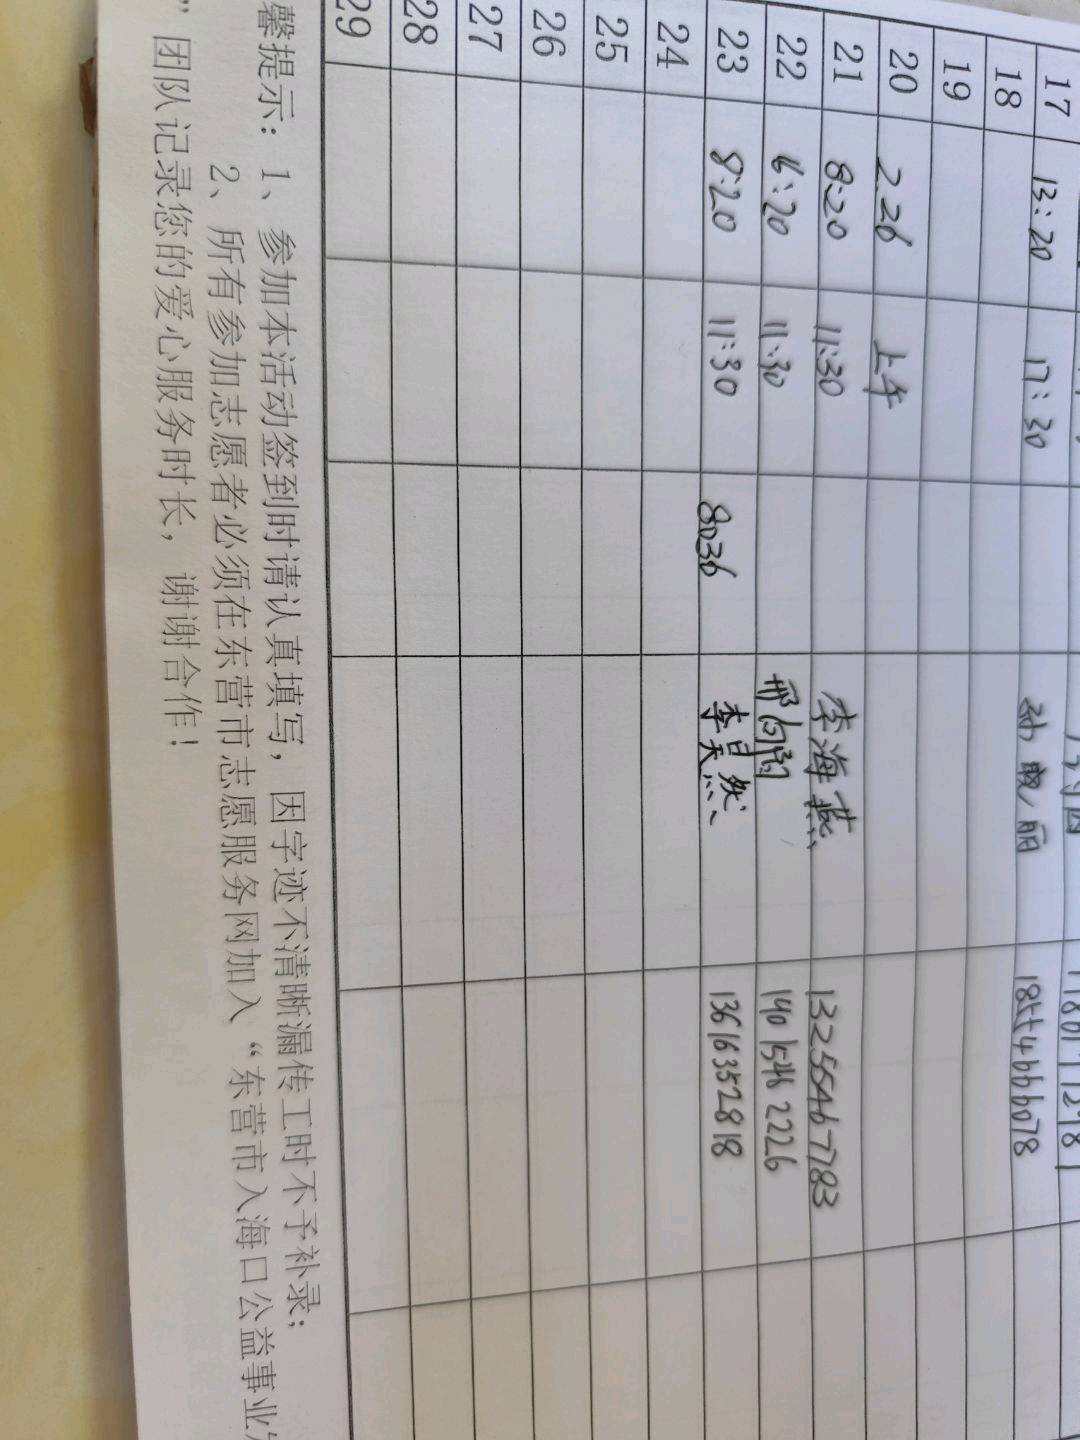 17 13:20 17:30
18 18554666078
19
20 2.26 上午
21 8:20 11:30 李海燕 13255467783
22 6:20 11:30 140 1546 2226
23 8:20 11:30 8036 李昊然 13616352818
24
25
26
27
28
29
馨提示：1、参加本活动签到时请认真填写，因字迹不清晰漏传工时不予补录；
2、所有参加志愿者必须在东营市志愿服务网加入“东营市入海口公益事业
”团队记录您的爱心服务时长，谢谢合作！